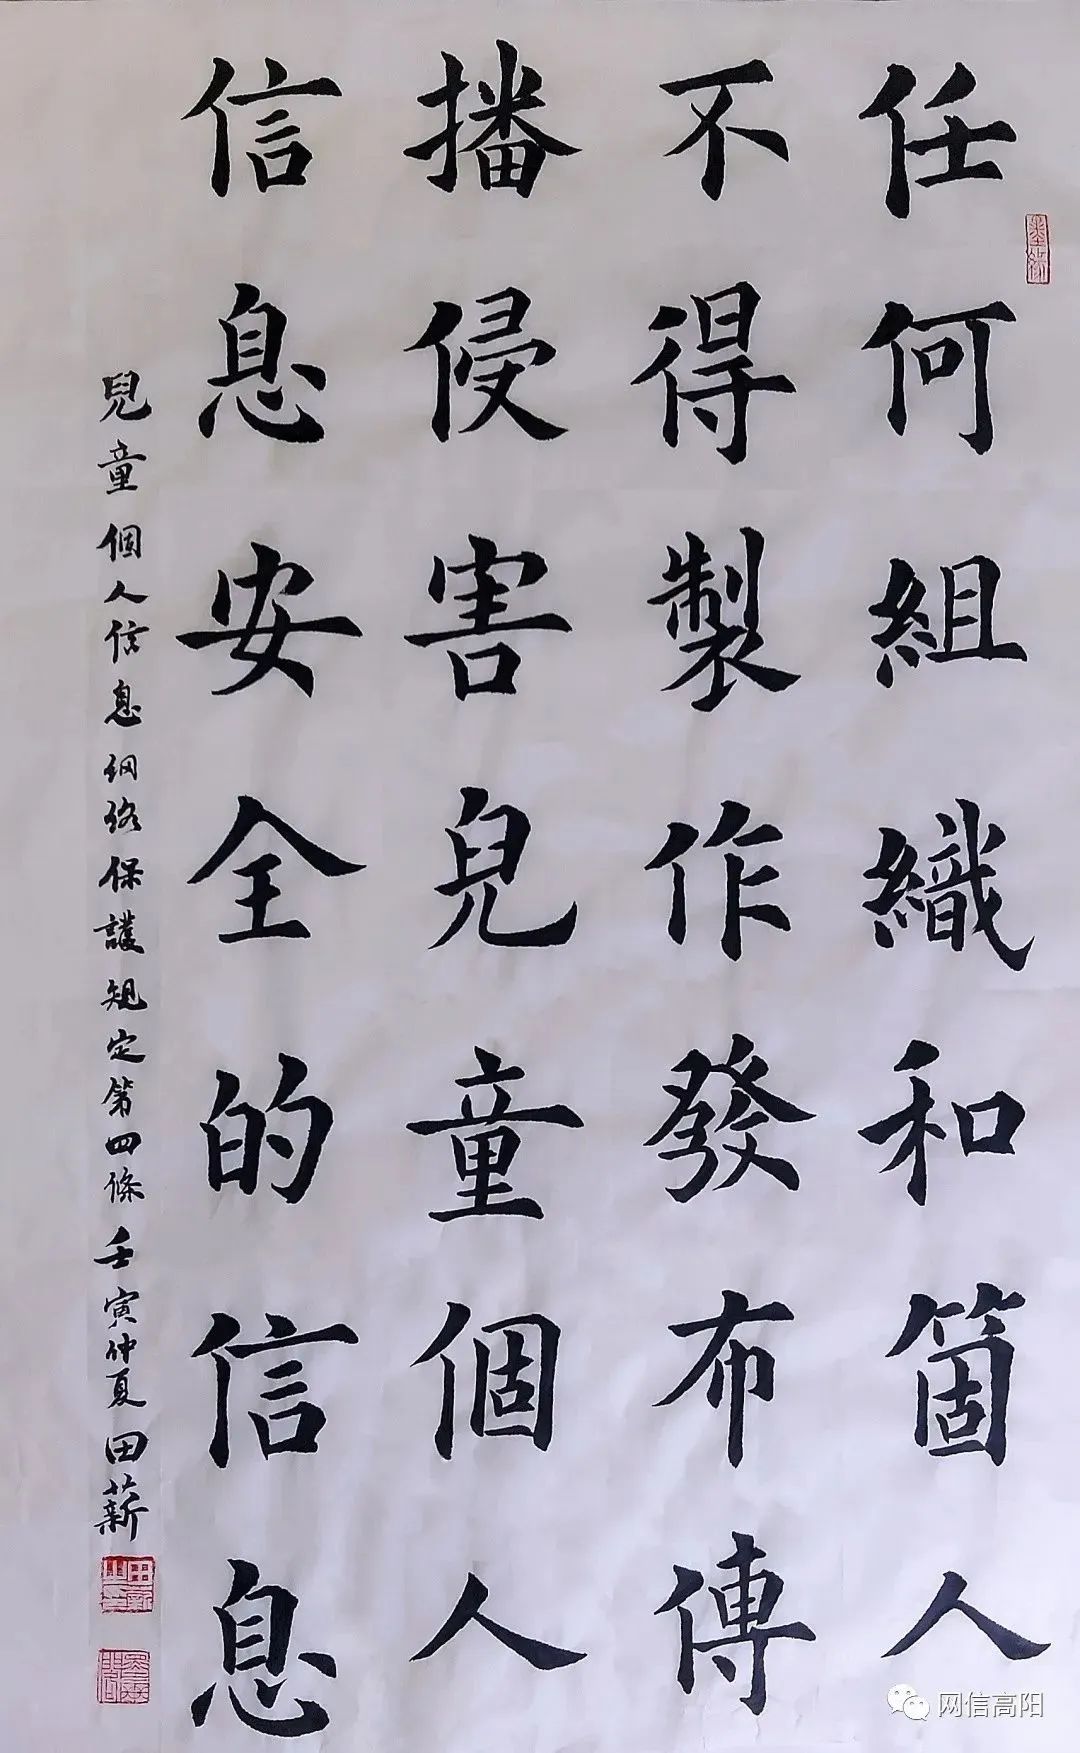 任何組織和箇人
不得製作發布傳
播侵害兒童個人
信息安全的信息
兒童個人信息网络保護規定第四條壬寅仲夏田薪
网信高阳